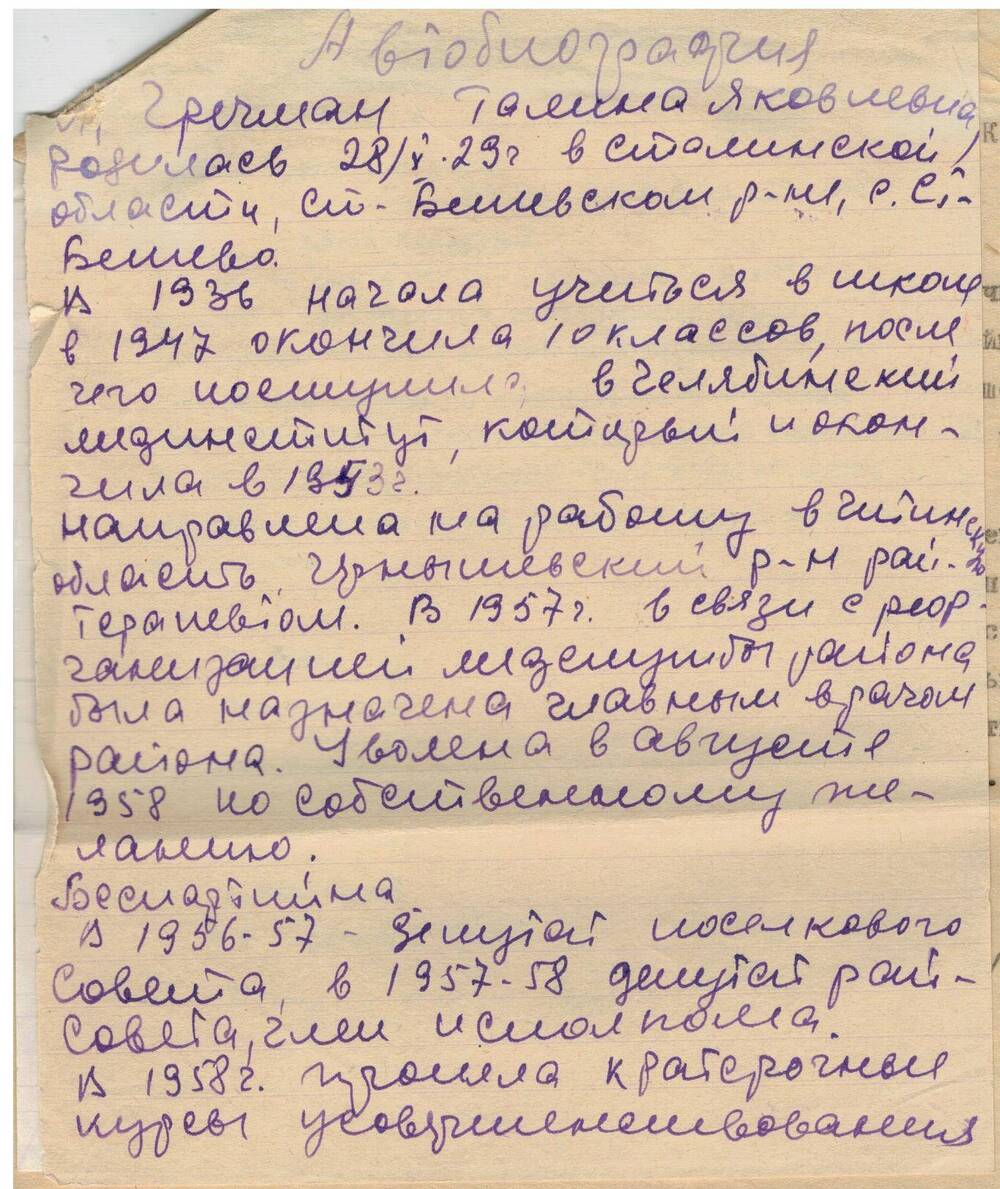 Автобиография
Я, Гречман Галина Яковлевна,
родилась 28/X-29г в Сталинской
области, Ст-Бешевском р-не, с. Ст-
Бешево.
В 1936 начала учиться в школе
в 1947 окончила 10 классов, после
чего поступила в Челябинский
мединститут, который и окон-
чила в 1953г.
Направлена на работу в Читинскую
область, Чернышевский р-н рай-
терапевтом. В 1957г. в связи с реор-
ганизацией медслужбы района
была назначена главным врачом
района. Уволена в августе
1958 по собственному же-
ланию.
Беспартийна
В 1956-57 - депутат поселкового
Совета, в 1957-58 депутат рай-
Совета, член исполкома.
В 1958г. прошла кратсрочные
курсы усовершенствования